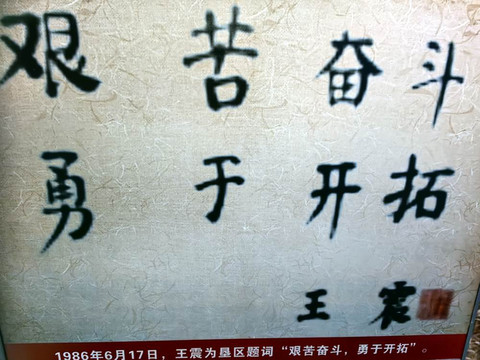 艰苦奋斗
勇于开拓
王震
1986年6月17日，王震为垦区题词“艰苦奋斗，勇于开拓”。